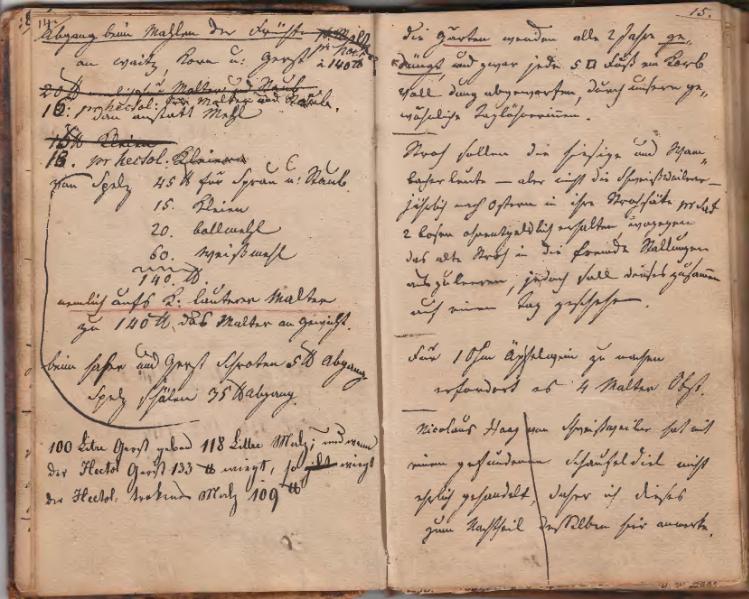 14.
Abgang beim Mahlen der Früchte pr Malt.
an Waitz, Korn u: Gerst à 140 ℔
20 ℔ Malter Staub
16. pr hectol: für Malter und Staub.
dan anstatt Mehl
15 ℔ Kleien
13. pr hectol. Kleien
Von Spelz 45 ℔ für Sprau u: Staub.
15. Kleien
20. bollmehl
60. Weißmehl
140. ℔.
nemlich aufs K. lauterer Malter
zu 140 ℔, das Malter an Gewicht.
beim hafer und Gerst Schroten 5 ℔ Abgang
Spelz schälen 35 ℔ Abgang
100 Litre Gerst geben 118 Litter Malz; und wenn
der Hectol Gerst 133 ℔ wiegt, so gibt wiegt
der Hectol. trokenes Malz 109 ℔
15.
die Gärten werden alle 2 Jahre ge-
düngt, und zwar jede 5 □ Fuß ein Korb
voll dung abgeworfen, durch unsere ge-
wöhnliche Taglöhnerinnen.
Stroh sollen die hiesige und
leute — aber nicht die
jährlich nach Ostern in ihre Strohsäke
2 Bosen ohnentgeldlich erhalten, wogegen
das alte Stroh in die fremde Stallungen
auszuleeren, jedoch soll dieses zusamen
auf einen Tag geschehen.
Für 1 Ohm Äpfelwein zu machen
erfordert es 4 Malter Obst.
Nicolaus Haag von Schweißweiler hat mit
einem gefundenen Schaufel nicht
ehrlich gehandelt, daher ich dieses
zum Nachtheil desselben hier anmerke.